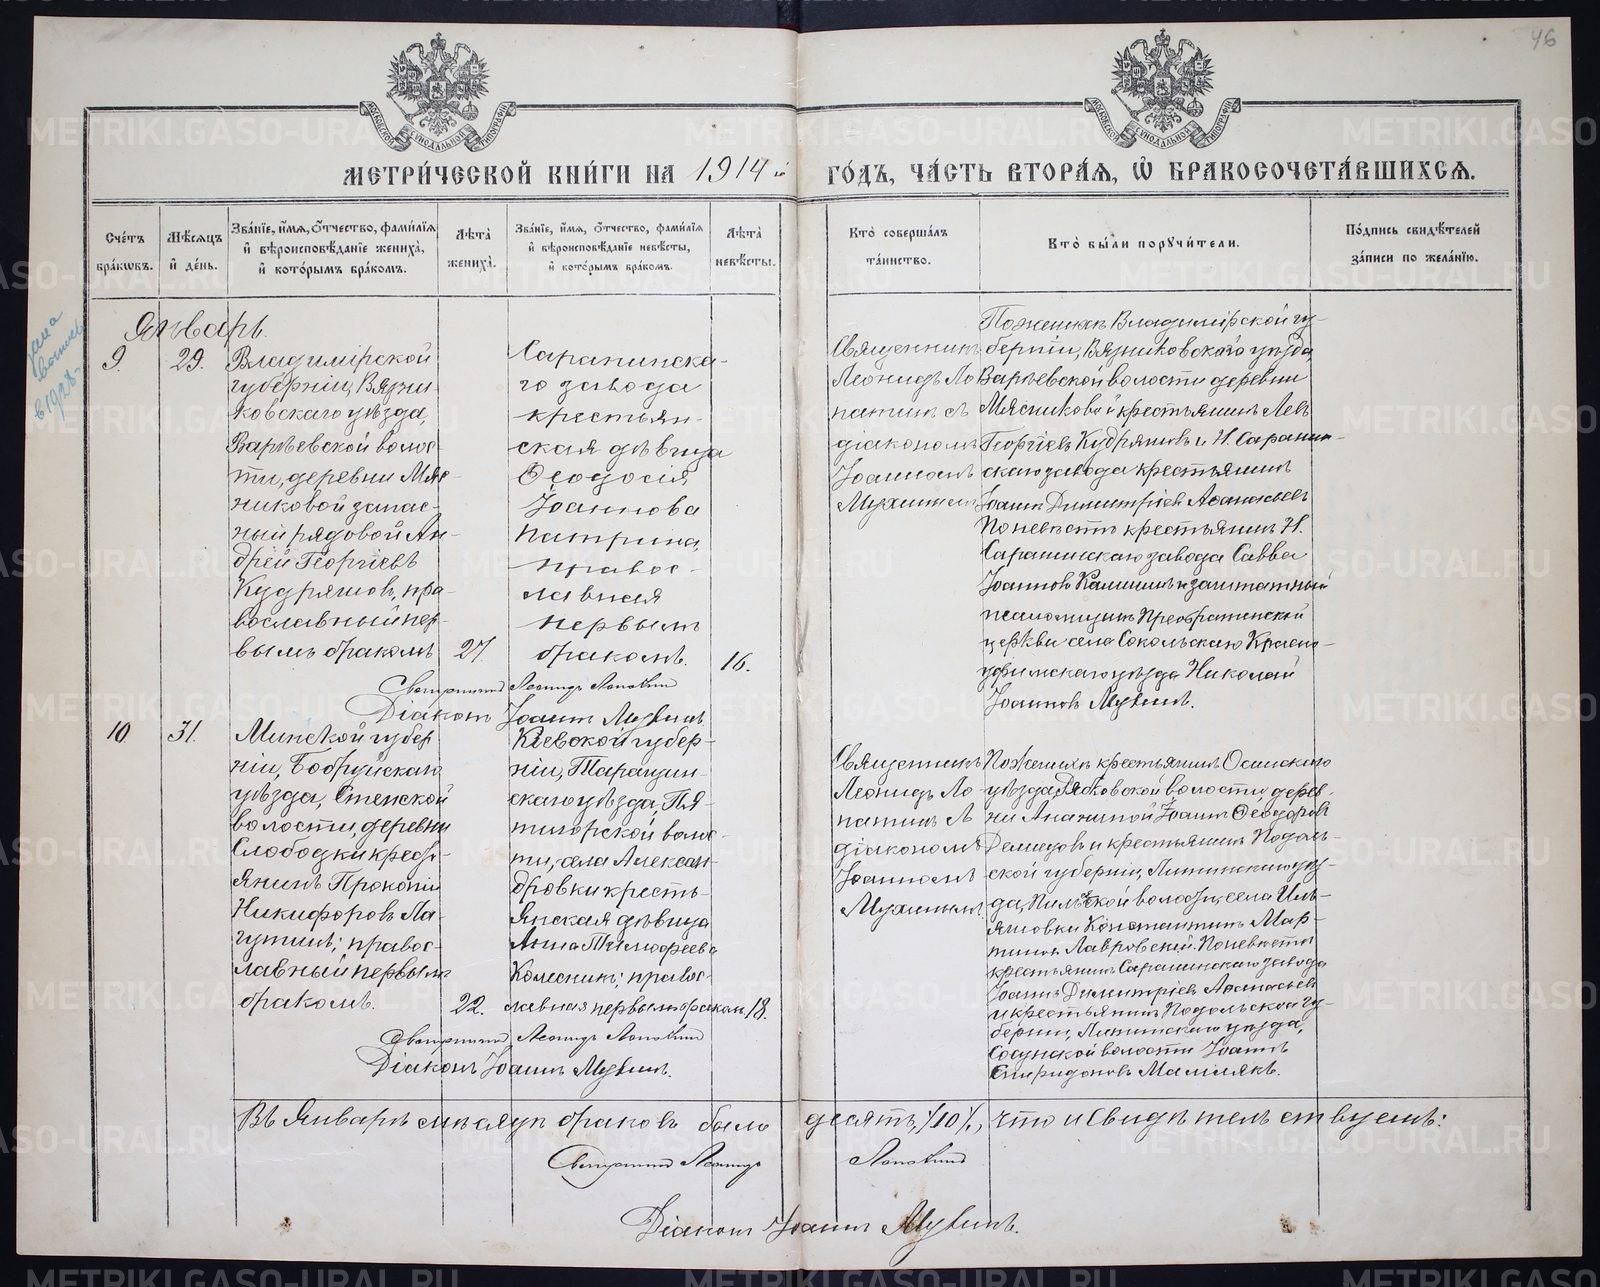 46
МЕТРИ́ЧЕСКОЙ КНИ́ГИ НА 1914й ГО́ДЪ, ЧА́СТЬ ВТОРА́Я, Ѡ БРАКОСОЧЕТА́ВШИХСЯ.
Сче́тъ бра́кωвъ.
Мѣ́сяцъ и҆ де́нь.
Зва́нїе, и҆́мя, ѻ҆́тчество, фами́лїя и҆ вѣроисповѣ́данїе жениха̀, и҆ кото́рымъ бра́комъ.
Лѣта̀ жениха̀.
Зва́нїе, и҆́мя, ѻ҆́тчество, фами́лїя и҆ вѣроисповѣ́данїе невѣ́сты, и҆ кото́рымъ бра́комъ.
Лѣта̀ невѣ́сты.
Кто̀ соверша́лъ та́инство.
Кто̀ бы́ли порꙋчи́тели.
По́дпись свидѣ́телей за́писи по жела́нїю.
в 1928
Январь.
9.
29.
Владимірской
губерніи, Вязни-
ковскаго уѣзда,
Варѣевской волос-
ти, деревни Мяс-
никовой запас-
ный рядовой Ан-
дрей Георгіевъ
Кудряшовъ, пра-
вославный пер-
вымъ бракомъ
27.
Сарапинска-
го завода
крестьян-
ская дѣвица
Ѳеодосія
Іоаннова
Патрина,
правос-
лавная
первымъ
бракомъ.
16.
Священникъ
Леонидъ Ло
патинъ съ
діакономъ
Іоанномъ
Мухинымъ
По женихѣ Владимірской гу-
берніи, Вязниковскаго уѣзда,
Варѣевской волости деревни
Мясниковой крестьянинъ Левъ
Георгіевъ Кудряшовъ и Н. Сарапин-
скаго завода крестьянинъ
Іоаннъ Димитріевъ Аѳанасьевъ
По невѣстѣ крестьянинъ Н.
Сарапинскаго завода Савва
Іоанновъ и заштатный
псаломщикъ Преображенской
церкви села Сокольскаго Красно-
уфимскаго уѣзда Николай
Іоанновъ Мухинъ.
Священникъ Леонидъ Лопатинъ
Діаконъ Іоаннъ Мухинъ
10
31.
Минской губер
ніи, Бобруйскаго
уѣзда, Степской
волости, деревни
Слободки кресть-
янинъ Прокопій
Никифоровъ Ла-
гутинъ; правос-
лавный первымъ
бракомъ.
22.
Кіевской губер-
ніи, Таращин-
скаго уѣзда, Пя-
тигорской волос-
ти, села Алексан-
дровки кресть-
янская дѣвица
Анна Тимоѳеева
Колесникъ; правос-
лавная первымъ бракомъ
18.
Священникъ
Леонидъ Ло
патинъ съ
діакономъ
Іоанномъ
Мухинымъ.
По женихѣ крестьянинъ Осинскаго
уѣзда, Рябковской волости, дерев-
ни Ананьиной Іоаннъ Ѳеодоровъ
Демидовъ и крестьянинъ Подоль-
ской губерніи, Литинскаго уѣз-
да, волости, села
Константинъ Мар-
тиновъ Лавровскій. По невѣстѣ
крестьянинъ Сарапинскаго завода
Іоаннъ Димитріевъ Аѳанасьевъ
и крестьянинъ Подольской гу-
берніи, Литинскаго уѣзда,
Сосунской волости Іоаннъ
Спиридоновъ
Священникъ Леонидъ Лопатинъ
Діаконъ Іоаннъ Мухинъ.
Въ Январѣ мѣсяцѣ браковъ было десять, /10/, что и свидѣтельствуемъ:
Священникъ Леонидъ Лопатинъ
Діаконъ Іоаннъ Мухинъ.